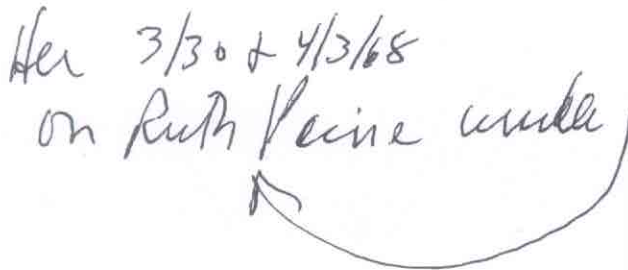 Her 3/30 & 4/3/68
on Ruth Paine under